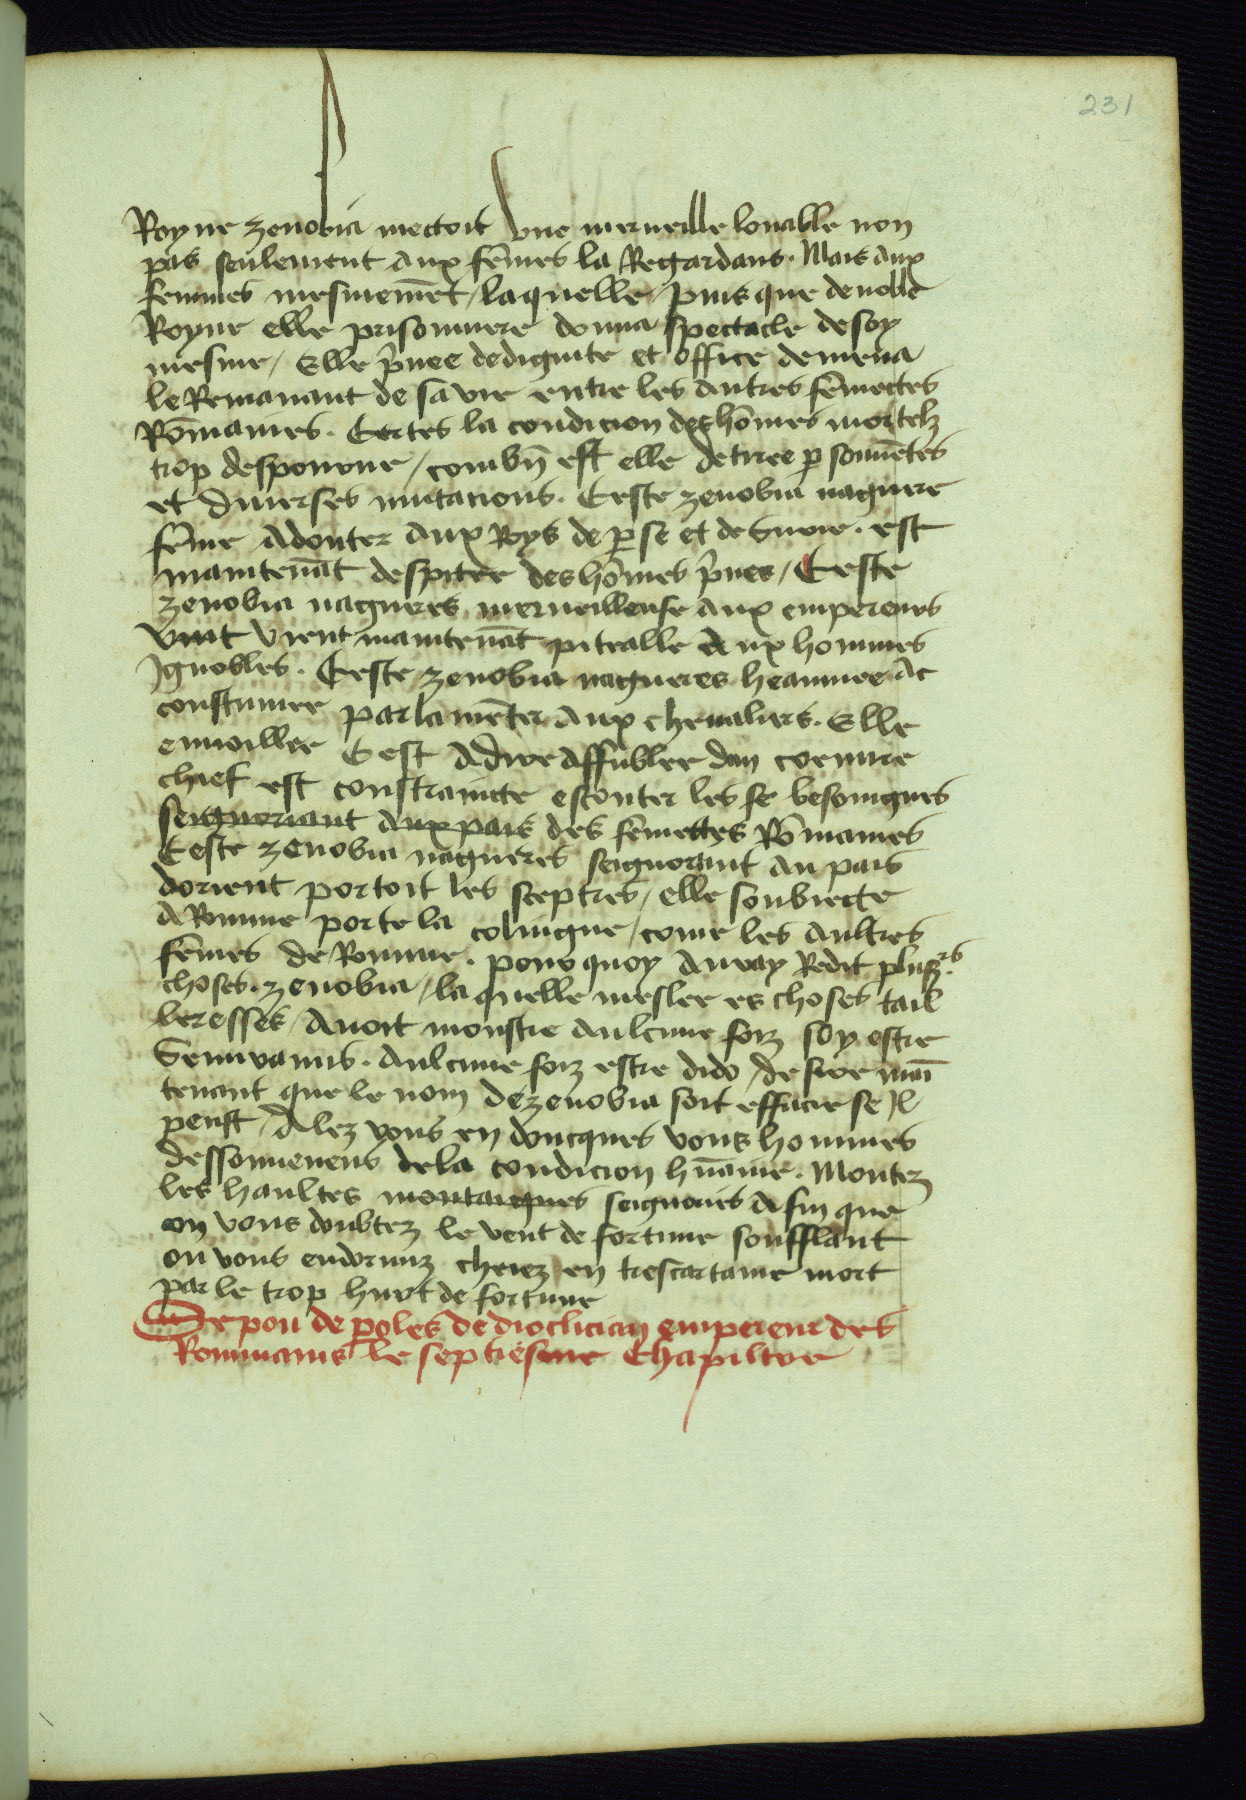 231
Royne zenobia mectoit une merveille louable non
pas seulement aux fēmes la Regardans. Mais aux
femmes mesmemēt / laquelle / puis que de noble
Royne elle prisonniere donna spectacle de soy
mesme / Elle p̄vee de dignite et office demena
le Remanant de sa vie entre les autres fēmectes
Rōmaines. Certes la condicion des hōmes mortelz
trop desponrue / combn̄ est elle detiree p souvētes
et diverses mutacions. Ceste zenobia naguere
fēme a douter aux Roys de pse et de Surie. est
maintenāt despitee des hōmes p̄ves / Ceste
zenobia nagueres merveilleuse aux empereurs
vint vient maintenāt piteable aux hommes
Ignobles. Ceste zenobia nagueres heaumee Ac
coustumee parlamēter aux chevaliers. Elle
envoillee Cest adire affublee dun coeuvre
chief est constrainte escouter les se besoingnes
seignoriant aux pais des fēmettes Rōmaines
Ceste zenobia nagueres seignorant au pais
dorient portoit les sceptres / elle soubiecte
a Romme porte la coloingne / come les aultres
fēmes de Romme. pour quoy auray Redit plus̄rs
choses. zenobia / la quelle meslee es choses tail
leresses / Avoit monstre aulcune foiz soy estre
Semiramis. Aulcune foiz estre dido / desire mai
tenant que le nom de zenobia soit efface se Il
peust / Alez vous en doncques vous hommes
dessouvenens de la condicion hūaine. Montez
les haultes montaignes seignours Afin que
on vous doubtez le vent de fortune soufflant
ou vous endormiz cheiez en trescartaine mort
par le trop hurt de fortune
De pou de poles de dioclician empereur des
Rommains le septiesme Chapiltre